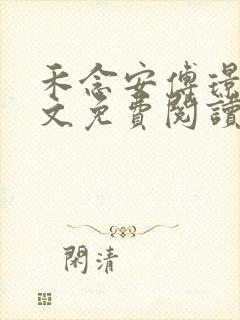 禾念安傅璟
文免費閱讀
閑清